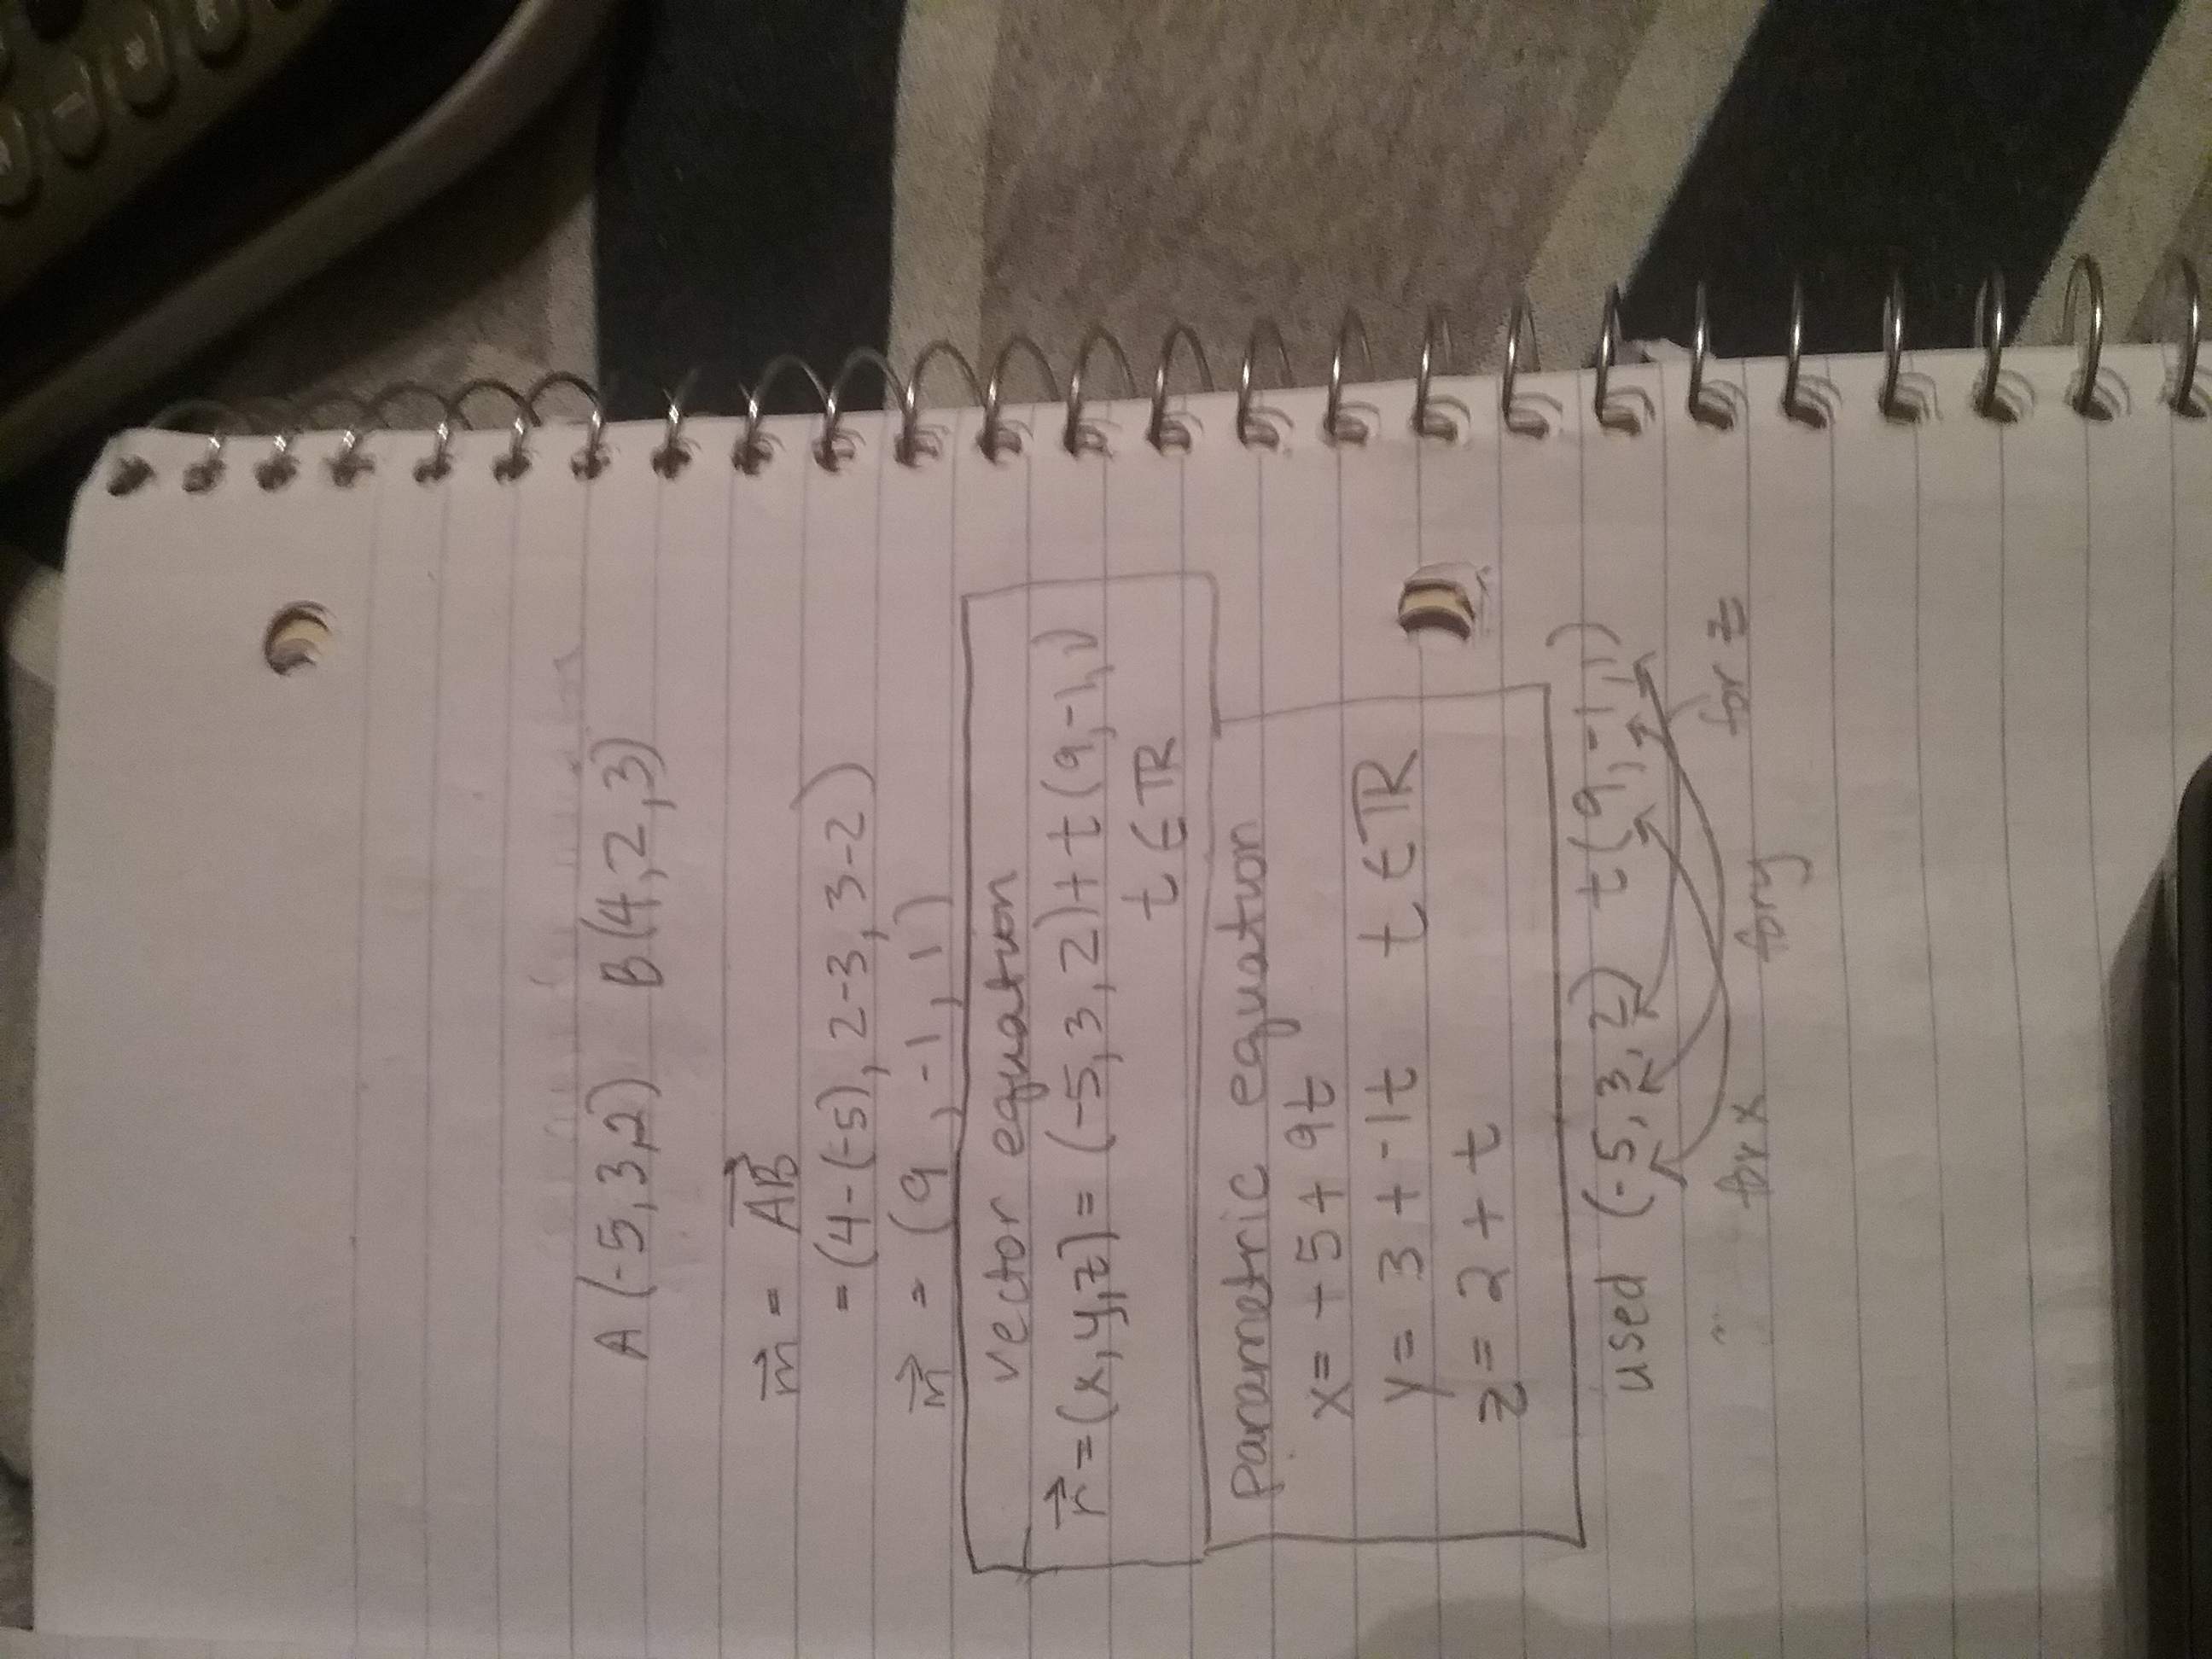 A (-5,3,2) B(4,2,3)
m⃗ = AB⃗
= (4-(-5), 2-3, 3-2)
m⃗ = (9, -1, 1)
vector equation
r⃗ = (x,y,z) = (-5,3,2) + t(9,-1,1)
t ∈ ℝ
Parametric equation
x = -5 + 9t
y = 3 + -1t t ∈ ℝ
z = 2 + t
used (-5,3,2) t(9,-1,1)
for x for y for z